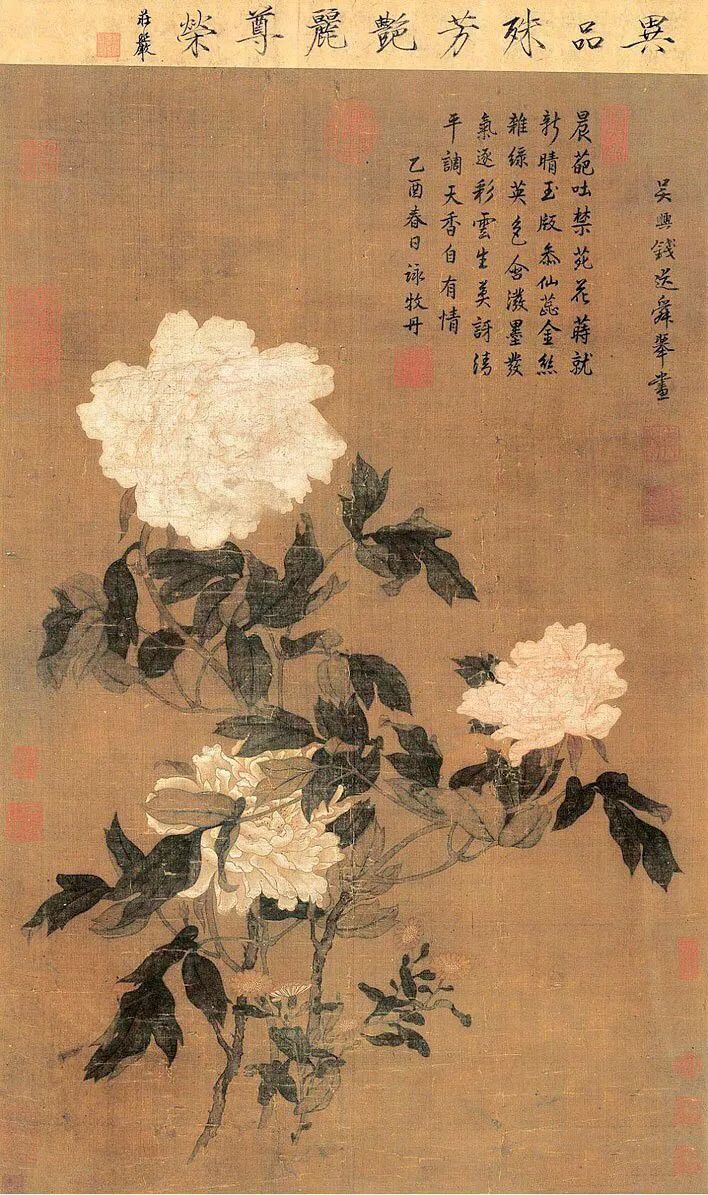 異品殊芳艷麗尊榮
莊嚴
吳興錢選舜舉畫
晨葩吐禁苑花蒔就
新晴玉版叅仙蕊金絲
雜綠英色含潑墨發
氣逐彩雲生莫訝清
平調天香自有情
乙酉春日詠牧丹